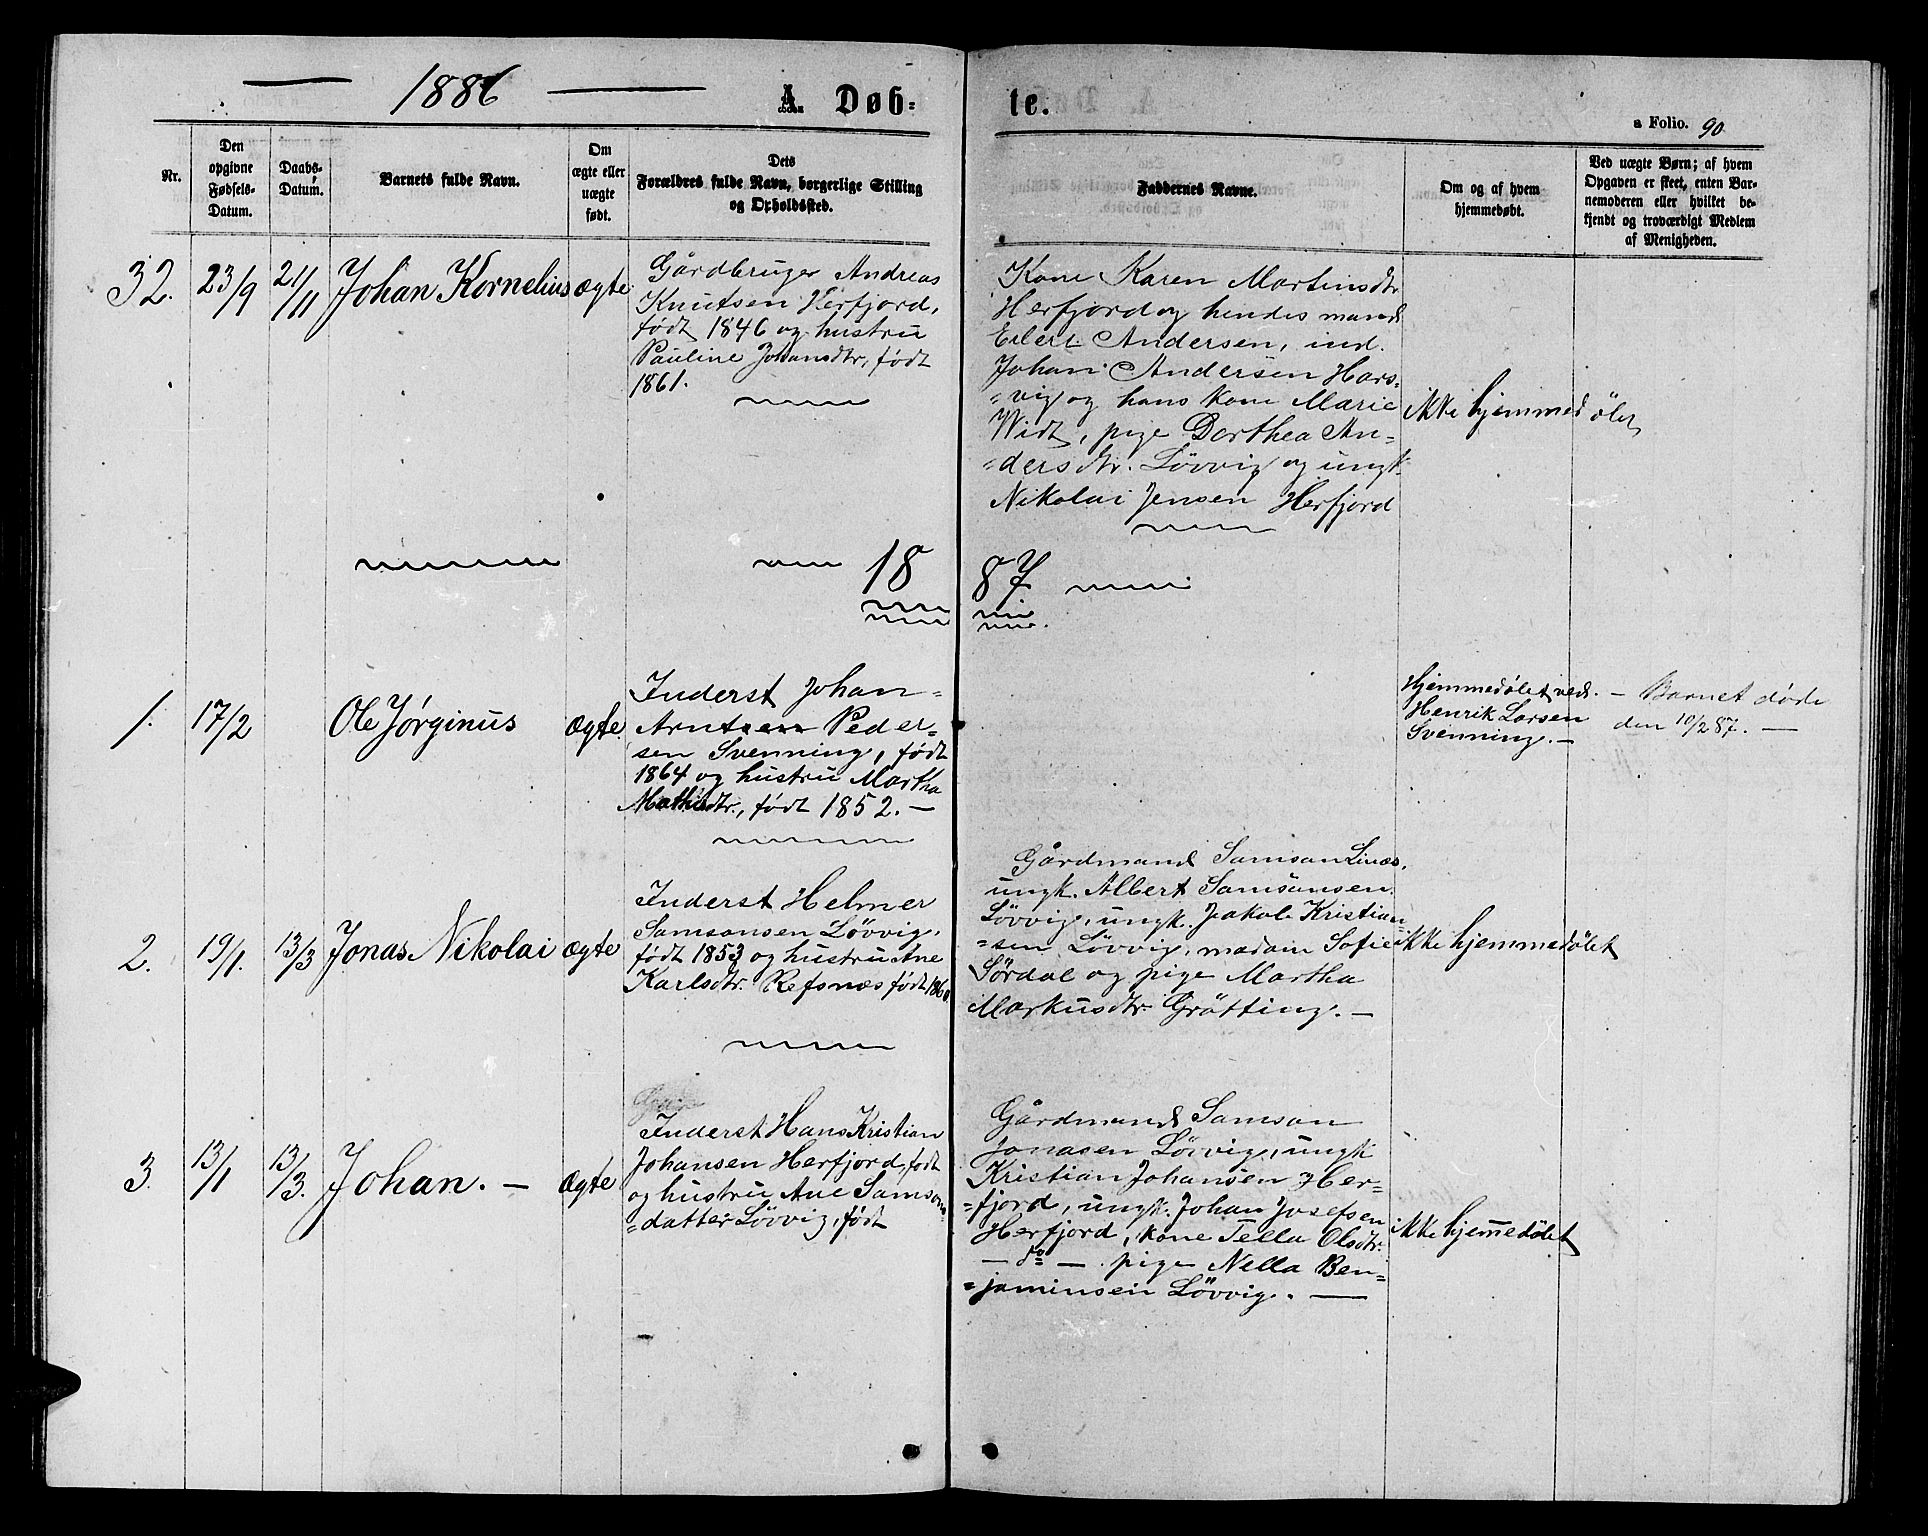 1886
A. Døb-
te.
a Folio. 90
Nr.
Den opgivne Fødsels-Datum.
Daabs-Datum.
Barnets fulde Navn.
Om ægte eller uægte født.
Dets Forældres fulde Navn, borgerlige Stilling og Opholdssted.
Faddernes Navne.
Om og af hvem hjemmedøbt.
Ved uægte Børn; af hvem Opgaven er skeet, enten Bar-nemoderen eller hvilket be-kjendt og troværdigt Medlem af Menigheden.
32. 23/9 21/11 Johan Kornelius ægte
Gårdbruger Andreas
Knutsen Herfjord,
født 1846 og hustru
Pauline Johansdtr, født
1861.
Kone Karen Martinsdtr
Herfjord og hendes mand
Eilert Andersen, ind.
Johan Andersen Hars-
=vig og hans kone Marie
Widt, pige Dorthea An-
=dersdtr. Lövvig og ungk.
Nikolai Jensen Herfjord
ikke hjemmedöbt
1887
1. 17/2 Ole Jørginus ægte
Inderst Johan
Arntsen Peder-
sen Svenning, født
1864 og hustru Martha
Mathisdtr., født 1852. —
Hjemmedöbt ved
Henrik Larsen
Svenning. —
— Barnet døde
den 10/2 87. —
2. 19/1. 13/3 Jonas Nikolai ægte
Inderst Helmer
Samsonsen Lövvig,
født 1853 og hustru Ane
Karlsdtr. Refsnæs født 1860
Gårdmand Samson Linæs,
ungk. Albert Samsonsen
Lövvig, ungk. Jakob Kristian-
=sen Lövvig, madam Sofie
Sördal og pige Martha
Markusdtr. Gråtting. —
ikke hjemmedöbt
3. 13/1 13/3. Johan. — ægte
Inderst Hans Kristian
Johansen Herfjord, født
og hustru Ane Samsons-
=datter Lövvig, født
Gårdmand Samson
Jonasen Lövvig, ungk
Kristian Johansen Her-
=fjord, ungk. Johan Josefsen
Herfjord, kone Tella Olsdtr.
— do — . pige Nella Ben-
=jaminsen Lövvig. —
ikke hjemedöbt